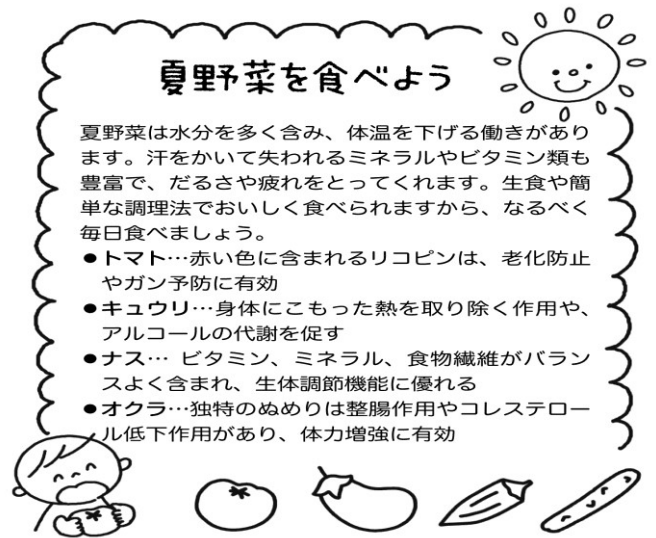 夏野菜を食べよう
夏野菜は水分を多く含み、体温を下げる働きがあり
ます。汗をかいて失われるミネラルやビタミン類も
豊富で、だるさや疲れをとってくれます。生食や簡
単な調理法でおいしく食べられますから、なるべく
毎日食べましょう。
●トマト…赤い色に含まれるリコピンは、老化防止
やガン予防に有効
●キュウリ…身体にこもった熱を取り除く作用や、
アルコールの代謝を促す
●ナス… ビタミン、ミネラル、食物繊維がバラン
スよく含まれ、生体調節機能に優れる
●オクラ…独特のぬめりは整腸作用やコレステロー
ル低下作用があり、体力増強に有効